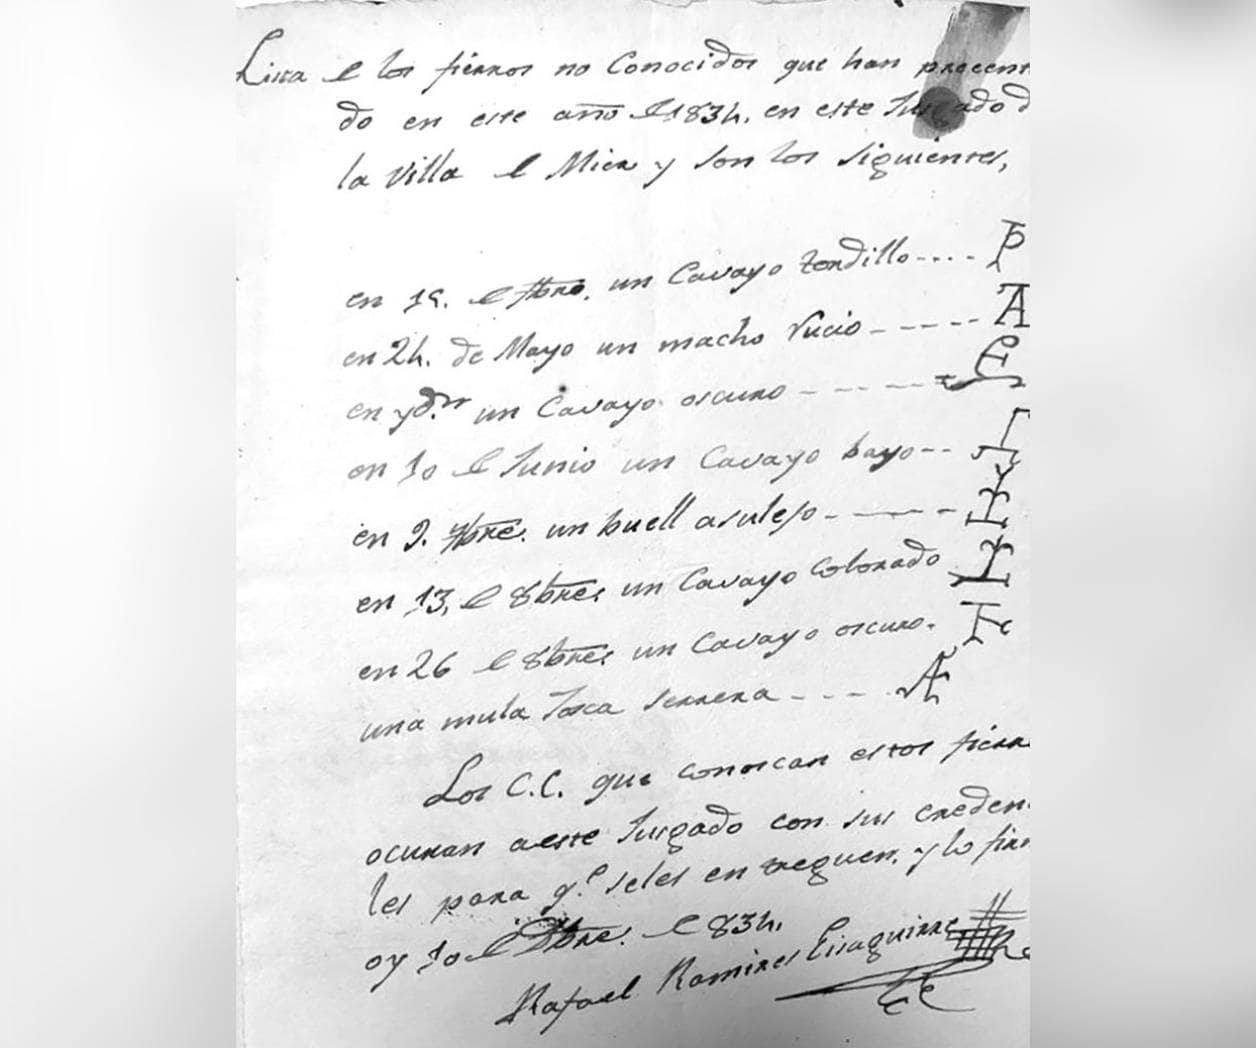 Lista de los fierros no Conocidos que han precent
do en este año de 1834. en este Jusgado d
la Villa de Mier y son los siguientes,
en 19. de fbro. un Cavayo tordillo.... P
en 24. de Mayo un macho rucio ----- A
en yd.m un Cavayo oscuro ------
en 10 de Junio un Cavayo bayo--
en 9. 7bre. un buell asulejo -----
en 13, de 8bre, un Cavayo Colorado
en 26 de 8bre, un Cavayo oscuro.
una mula Tosca serrera ---- A
Los C.C. que conoscan estos fierr
ocurran aeste Jusgado con sus creden
les para q.e seles entreguen. y lo firm
oy 10 de bre. de 834.
Rafael Ramires Eisaguirre